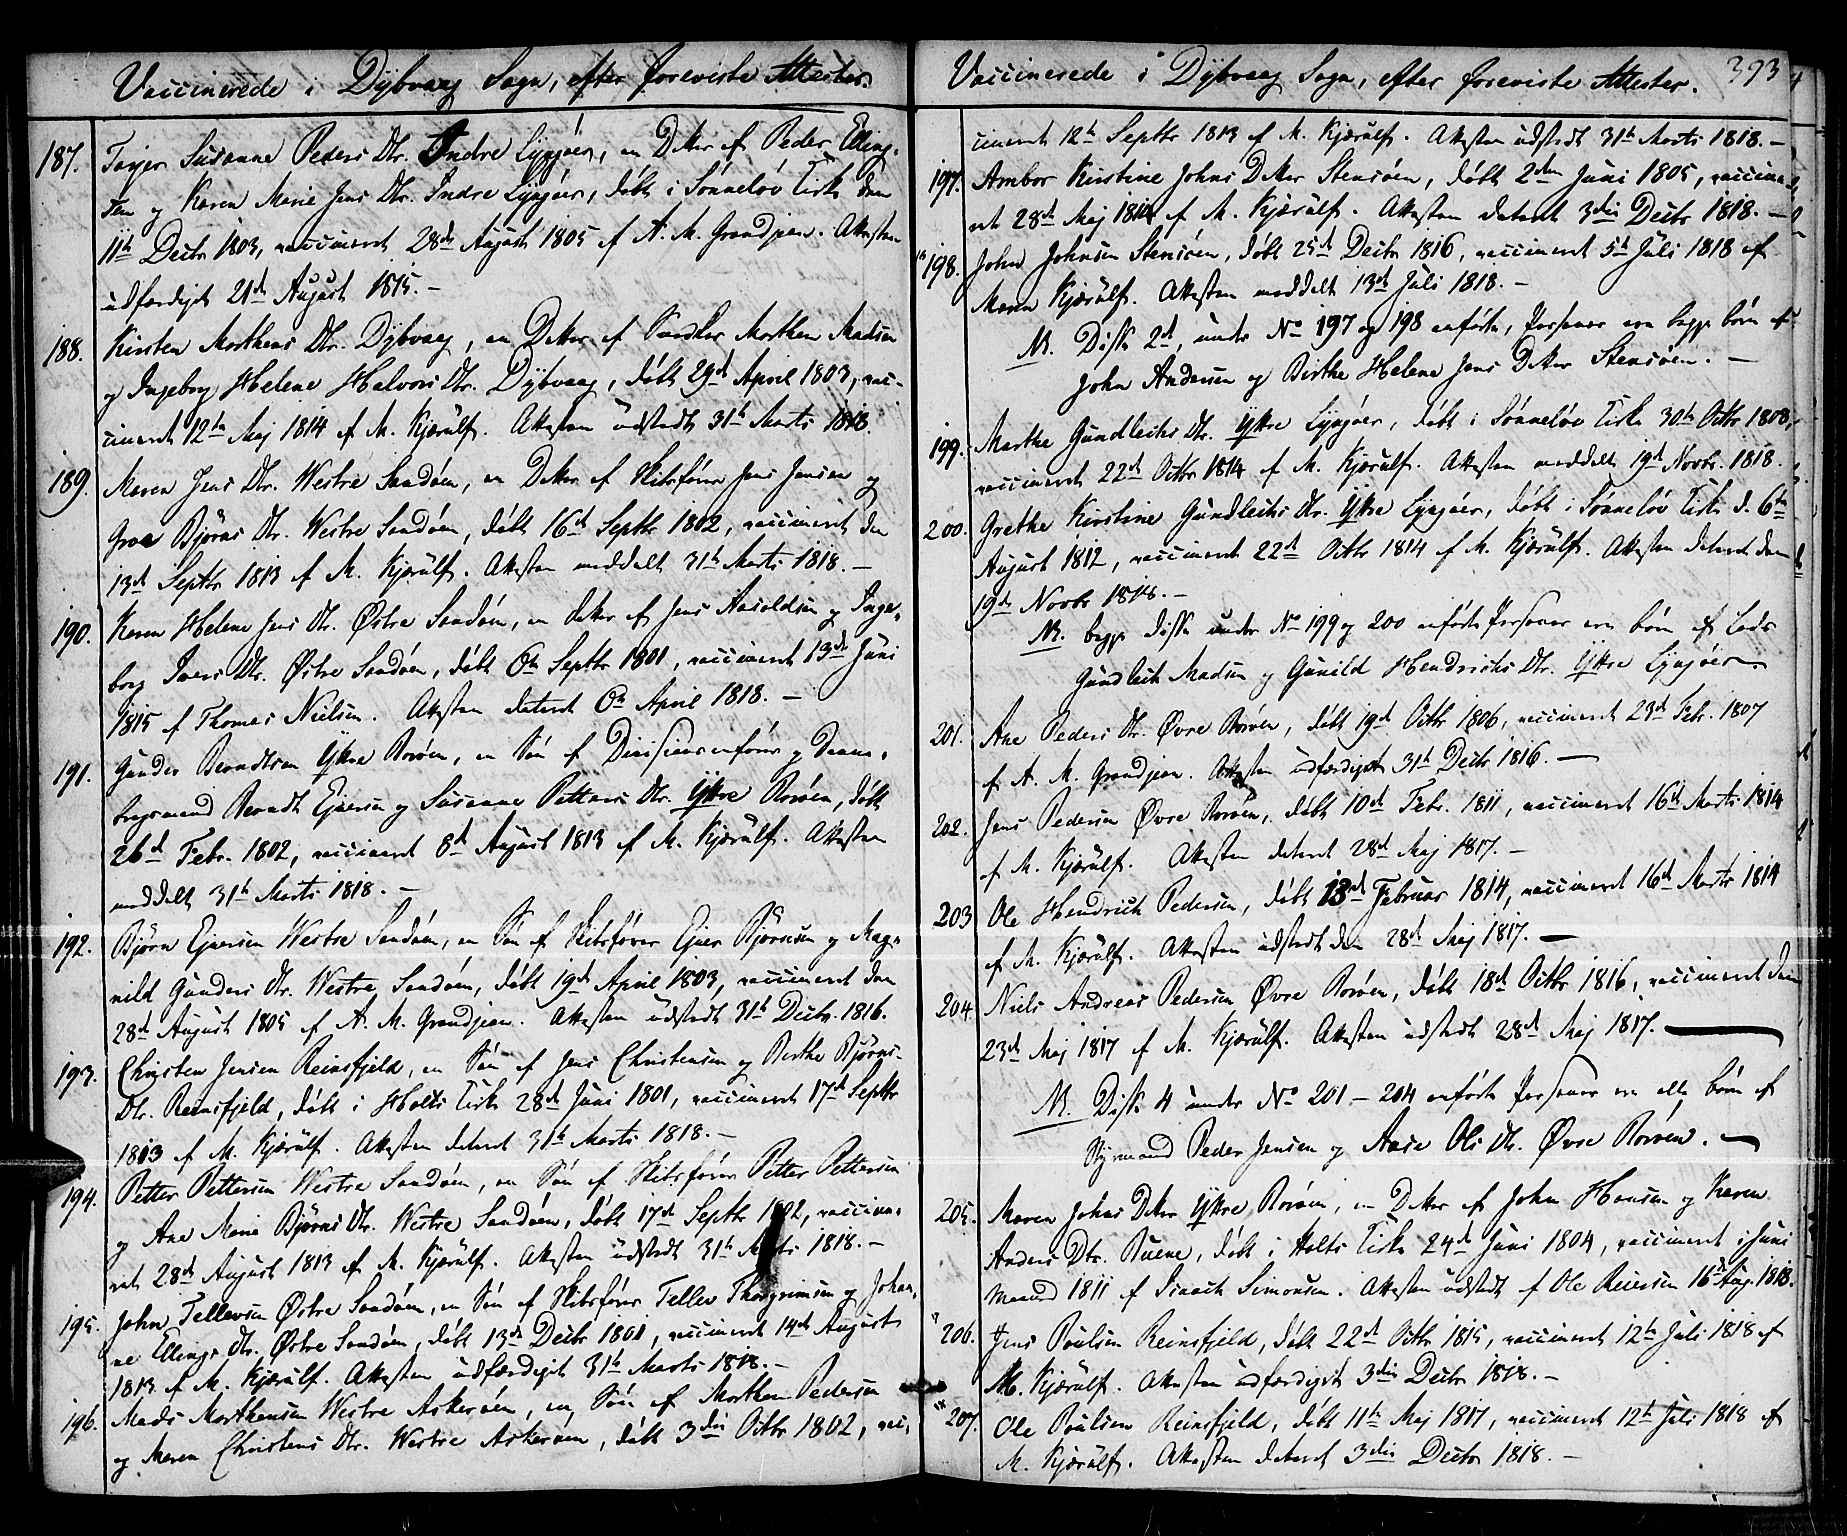 Vaccinerede i Dÿbvaag Sogn, efter foreviste Attester.
187. Taÿer Susanne Peders Dtr. Indre Lÿngöer, en Dtter af Peder Elling-
sen og Karen Marie Jens Dtr. Indre Lÿngöer, döbt i Sönnelöv Kirke den
11te Decbr 1803, vaccineret 28de August 1805 af A. M. Grandjean. Attesten
udfærdiget 21de August 1815. –
188. Kirsten Morthens Dtr. Dÿbvaag, en Dtter af Morthen Madsen
og Ingeborg Helene Halvors Dtr. Dÿbvaag, döbt 29de April 1803, vac-
cineret 12te Maj 1814 af M. Kjærülf. Attesten üdstedt 31te Marts 1818.
189. Maren Jens Dtr. Westre Sandöen, en Dtter af Skibsförer Jens Jensen og
Groe Björns Dtr. Westre Sandöen, döbt 16de Septbr 1802, vaccineret den
13de Septbr 1813 af M. Kjærülf. Attesten meddelt 31te Marts 1818. –
190. Karen Helene Jens Dtr. Østre Sandöen, en datter af Jens Aasoldsen og Inge-
borg Ivers Dtr. Østre Sandöen, döbt 6te Septbr 1801, vaccineret 13de Juni
1815 af Thomas Nielsen. Attesten dateret 6te April 1818. –
191. Gunder Berndtsen Ÿttre Boröen, en Sön af Divisionsanförer og Danne-
brogsmand Berndt Ejersen og Susanne Petters Dtr. Ÿttre Boröen, döbt
26de Febr. 1802, vaccineret 8de August 1813 af M. Kjærülf. Attesten
meddelt 31te Marts 1818. –
192. Björn Ejersen Westre Sandöen, en Sön af Skibsförer Ejer Björnsen og Mag-
nild Gunders Dtr. Westre Sandöen, döbt 19de April 1803, vaccineret den
28de August 1805 af A. M. Grandjean. Attesten üdstedt 31te Decbr. 1816.
193. Christen Jensen Reinsfjeld, en Sön af Jens Christensen og Berthe Björns-
Dtr. Reinsfjeld, döbt i Holts Kirke 28de Juni 1801, vaccineret 17de Septbr
1813 af M. Kjærülf. Attesten dateret 31te Marts 1818. –
194. Petter Pettersen Westre Sandöen, en Sön af Skibsförer Petter Pettersen
og Ane Marie Björns Dtr. Westre Sandöen, döbt 17de Septbr 1802, vaccine-
ret 28de August 1813 af M. Kjærülf. Attesten üdstedt 31te Marts 1818. –
195. John Tellevsen Østre Sandöen, en Sön af Skibsförer Tellev Thorgrimsen og Johan-
ne Ellings Dtr. Østre Sandöen, döbt 13de Decbr 1801, vaccineret 14de August
1813 af M. Kjærülf. Attesten udfærdiget 31te Marts 1818. –
196. Mads Morthensen Westre Askeröen, en Sön af Morthen Pedersen
og Maren Christens Dtr. Westre Askeröen, döbt 3die Octbr 1802, vac-
Vaccinerede i Dÿbvaag Sogn, efter foreviste Attester. 393
cineret 12te Septbr 1813 af M. Kjærülf. Attesten üdstedt 31te Marts 1818. –
197. Ambor Kirstine Johns Dtter Stensöen, döbt 2den Juni 1805, vaccine-
ret 28de Maj 1814 af M. Kjærülf. Attesten dateret 3die Decbr 1818. –
198. John Johnsen Stensöen, döbt 25de Decbr 1816, vaccineret 5te Juli 1818 af
Maren Kjærülf. Attesten meddelt 13de Juli 1818. –
NB. Disse 2de, under No 197 og 198 anförte, Personer ere begge börn af
John Andersen og Birthe Helene Jens Dtter Stensöen. –
199. Marthe Gundleiks Dtr. Ÿttre Lÿngöer, döbt i Sönnelöv Kirke 30te Octbr 1808,
vaccineret 22de Octbr 1814 af M. Kjærülf. Attesten meddelt 19de Novbr. 1818.
200. Grethe Kirstine Gundleiks Dtr. Ÿttre Lÿngöer, döbt i Sönnelöv Kirke d. 6te
August 1812, vaccineret 22de Octbr 1814 af M. Kjærülf. Attesten dateret den
19de Novbr 1818. –
NB. begge disse under No 199 og 200 anförte Personer ere börn af Lods
Gundleik Madsen og Gunild Hendrichs Dtr. Ÿttre Lÿngöer.
201. Ane Peders Dtr. Øvre Boröen, döbt 19de Octbr 1806, vaccineret 23de Febr. 1807
af A. M. Grandjean. Attesten udfærdiget 31te Decbr 1816. –
202. Jens Pedersen Øvre Boröen, döbt 10de Febr. 1811, vaccineret 16de Marts 1814
af M. Kjærülf. Attesten dateret 28de Maj 1817. –
203 Ole Hendrich Pedersen, döbt 13de Februar 1814, vaccineret 16de Marts 1814
af M. Kjærülf. Attesten üdstedt den 28de Maj 1817. –
204. Niels Andreas Pedersen Øvre Boröen, döbt 18de Octbr 1816, vaccineret den
23de Maj 1817 af M. Kjærülf. Attesten üdstedt 28de Maj 1817. –
NB. Disse 4 under No 201 – 204 anförte Personer ere alle börn af
Styrmand Peder Jensen og Aase Ols Dtr. Øvre Boröen. –
205. Maren Johns Dtter Ÿttre Boröen, en Dtter af John Hansen og Karen
Anders Dtr. Buene, döbt i Holts Kirke 24de Juni 1804, vaccineret i Juni
Maaned 1811 af Isaach Simonsen. Attesten üdstedt af Ole Reiersen 16de Aug. 1818.
206. Jens Poulsen Reinsfjeld, döbt 22de Octbr 1815, vaccineret 12te Juli 1818 af
M. Kjærülf. Attesten udfærdiget 3die Decbr 1818. –
207. Ole Poulsen Reinsfjeld, döbt 11te Maj 1817, vaccineret 12te Juli 1818 af
M. Kjærülf. Attesten dateret 3die Decbr 1818. –